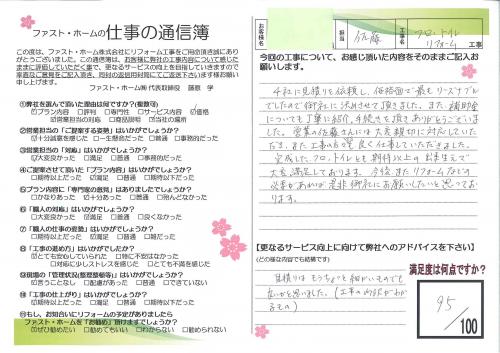 ファスト・ホームの仕事の通信簿
この度は、ファスト・ホーム株式会社にリフォーム工事をご用命頂き誠にあり
がとうございました。この通信簿は、お客様に弊社の工事内容について感じた
ままに評価していただく事で、更なるサービスの向上に向けて行きたいと思いますので
率直なご意見をご記入頂き、同封の返信用封筒にてご返送下さいます様お願い
申し上げます。
ファスト・ホーム㈱ 代表取締役 藤原 学
①弊社を選んで頂いた理由は何ですか?(複数可)
☑プラン内容 □評判 □専門性 □サービス内容 ☑価格
☑営業担当の対応 □商品説明 □当社の場所
②営業担当の「ご提案する姿勢」はいかがでしょうか?
☑十分誠意を感じた □一生懸命だった □普通 □事務的だった
③営業担当の「対応」はいかがでしょうか?
☑大変良かった □満足 □普通 □事務的だった
④ご提案させて頂いた「プラン内容」はいかがでしょうか?
☑期待以上だった □満足 □普通 □期待以下だった
⑤プラン内容に「専門家の意見」はありましたでしょうか?
□かなりあった ☑十分あった □普通 □殆んどなかった
⑥「職人の対応」はいかがでしょうか?
☑大変良かった □満足 □普通 □良くなかった
⑦「職人の仕事の姿勢」はいかがでしょうか?
☑期待以上だった □満足 □普通 □雑だった
⑧「工事の進めり」はいかがでしょうか?
☑とても安心していられた □特に不安はなかった
□対応に少しストレスを感じた □とても不満を感じた
⑨現場の「管理状況(整理整頓等)」はいかがでしょうか?
☑言うことなし □配慮があった □できていない
⑩「工事の仕上がり」はいかがでしょうか?
☑期待以上だった □満足 □普通 □期待以下だった
⑪もし、お知合いにリフォームの予定がありましたら
ファスト・ホームを「お勧め」頂けますでしょうか?
☑ぜひ勧めたい □勧めてもいい □わからない □勧められない
お客様名
担当
佐藤
工事名
フロ、トイレ
リフォーム 工事
今回の工事について、お感じ頂いた内容をそのままご記入お
願いします。
4社に見積りを依頼し、価格面で最もリーズナブル
でしたので御社に決めさせて頂きました。また、補助金
についても丁寧に紹介、手続きを頂きありがとうございま
した。営業の佐藤さんには大変親切に対応していた
だき、また工事の方も良く仕事していただきました。
完成したフロ、トイレとも期待以上の出来ばえで
大変満足しております。今後またリフォームなどの
必要があれば是非御社にお願いしたいと思ってお
ります。
【更なるサービス向上に向けて弊社へのアドバイスを下さい】
(どの様な内容でも結構です)
見積りはもうちょっと細かいものでも
良いかと思いました。(工事の内訳がわか
るもの)
満足度は何点ですか?
95
/100